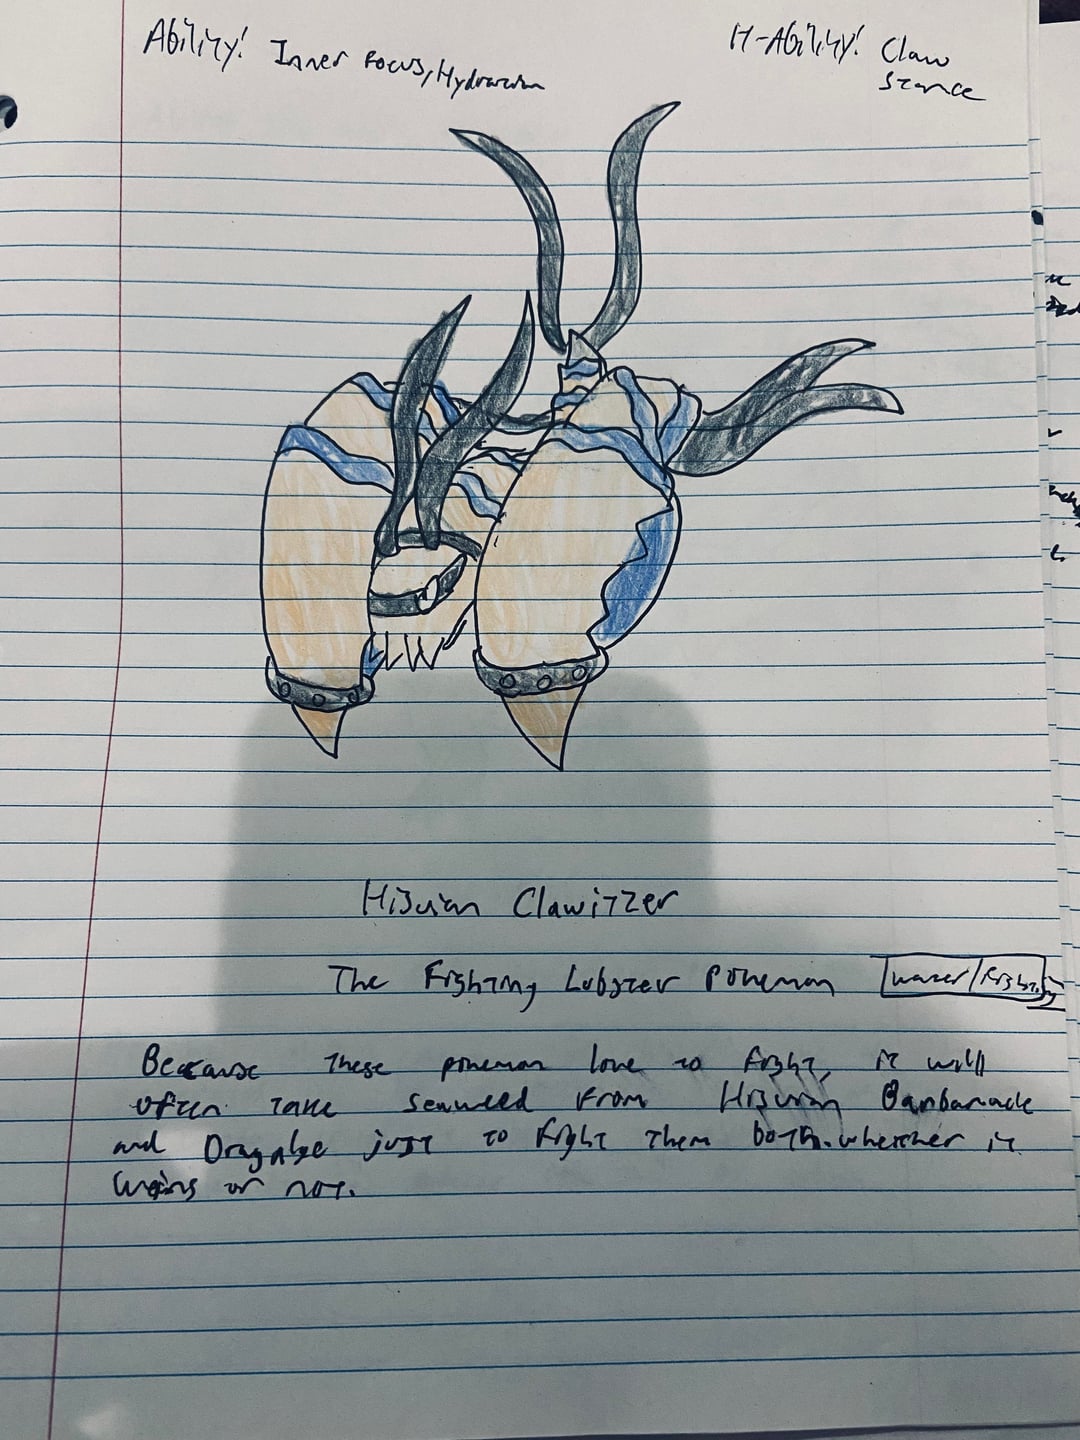 Ability! Inner Focus, Hydration
H-Ability! Claw
Stance
CLW
Hisuian Clawitzer
The Fighting Lobster Pokemon Water/Fighting
Because these pokemon love to fight, it will
often take seaweed from Hisuian Barbaracle
and Dragalge just to fight them both. whether it
wins or not.